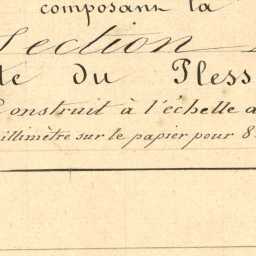 composant la
Section
te du Pless
Construit à l'échelle d
illimètre sur le papier pour 8